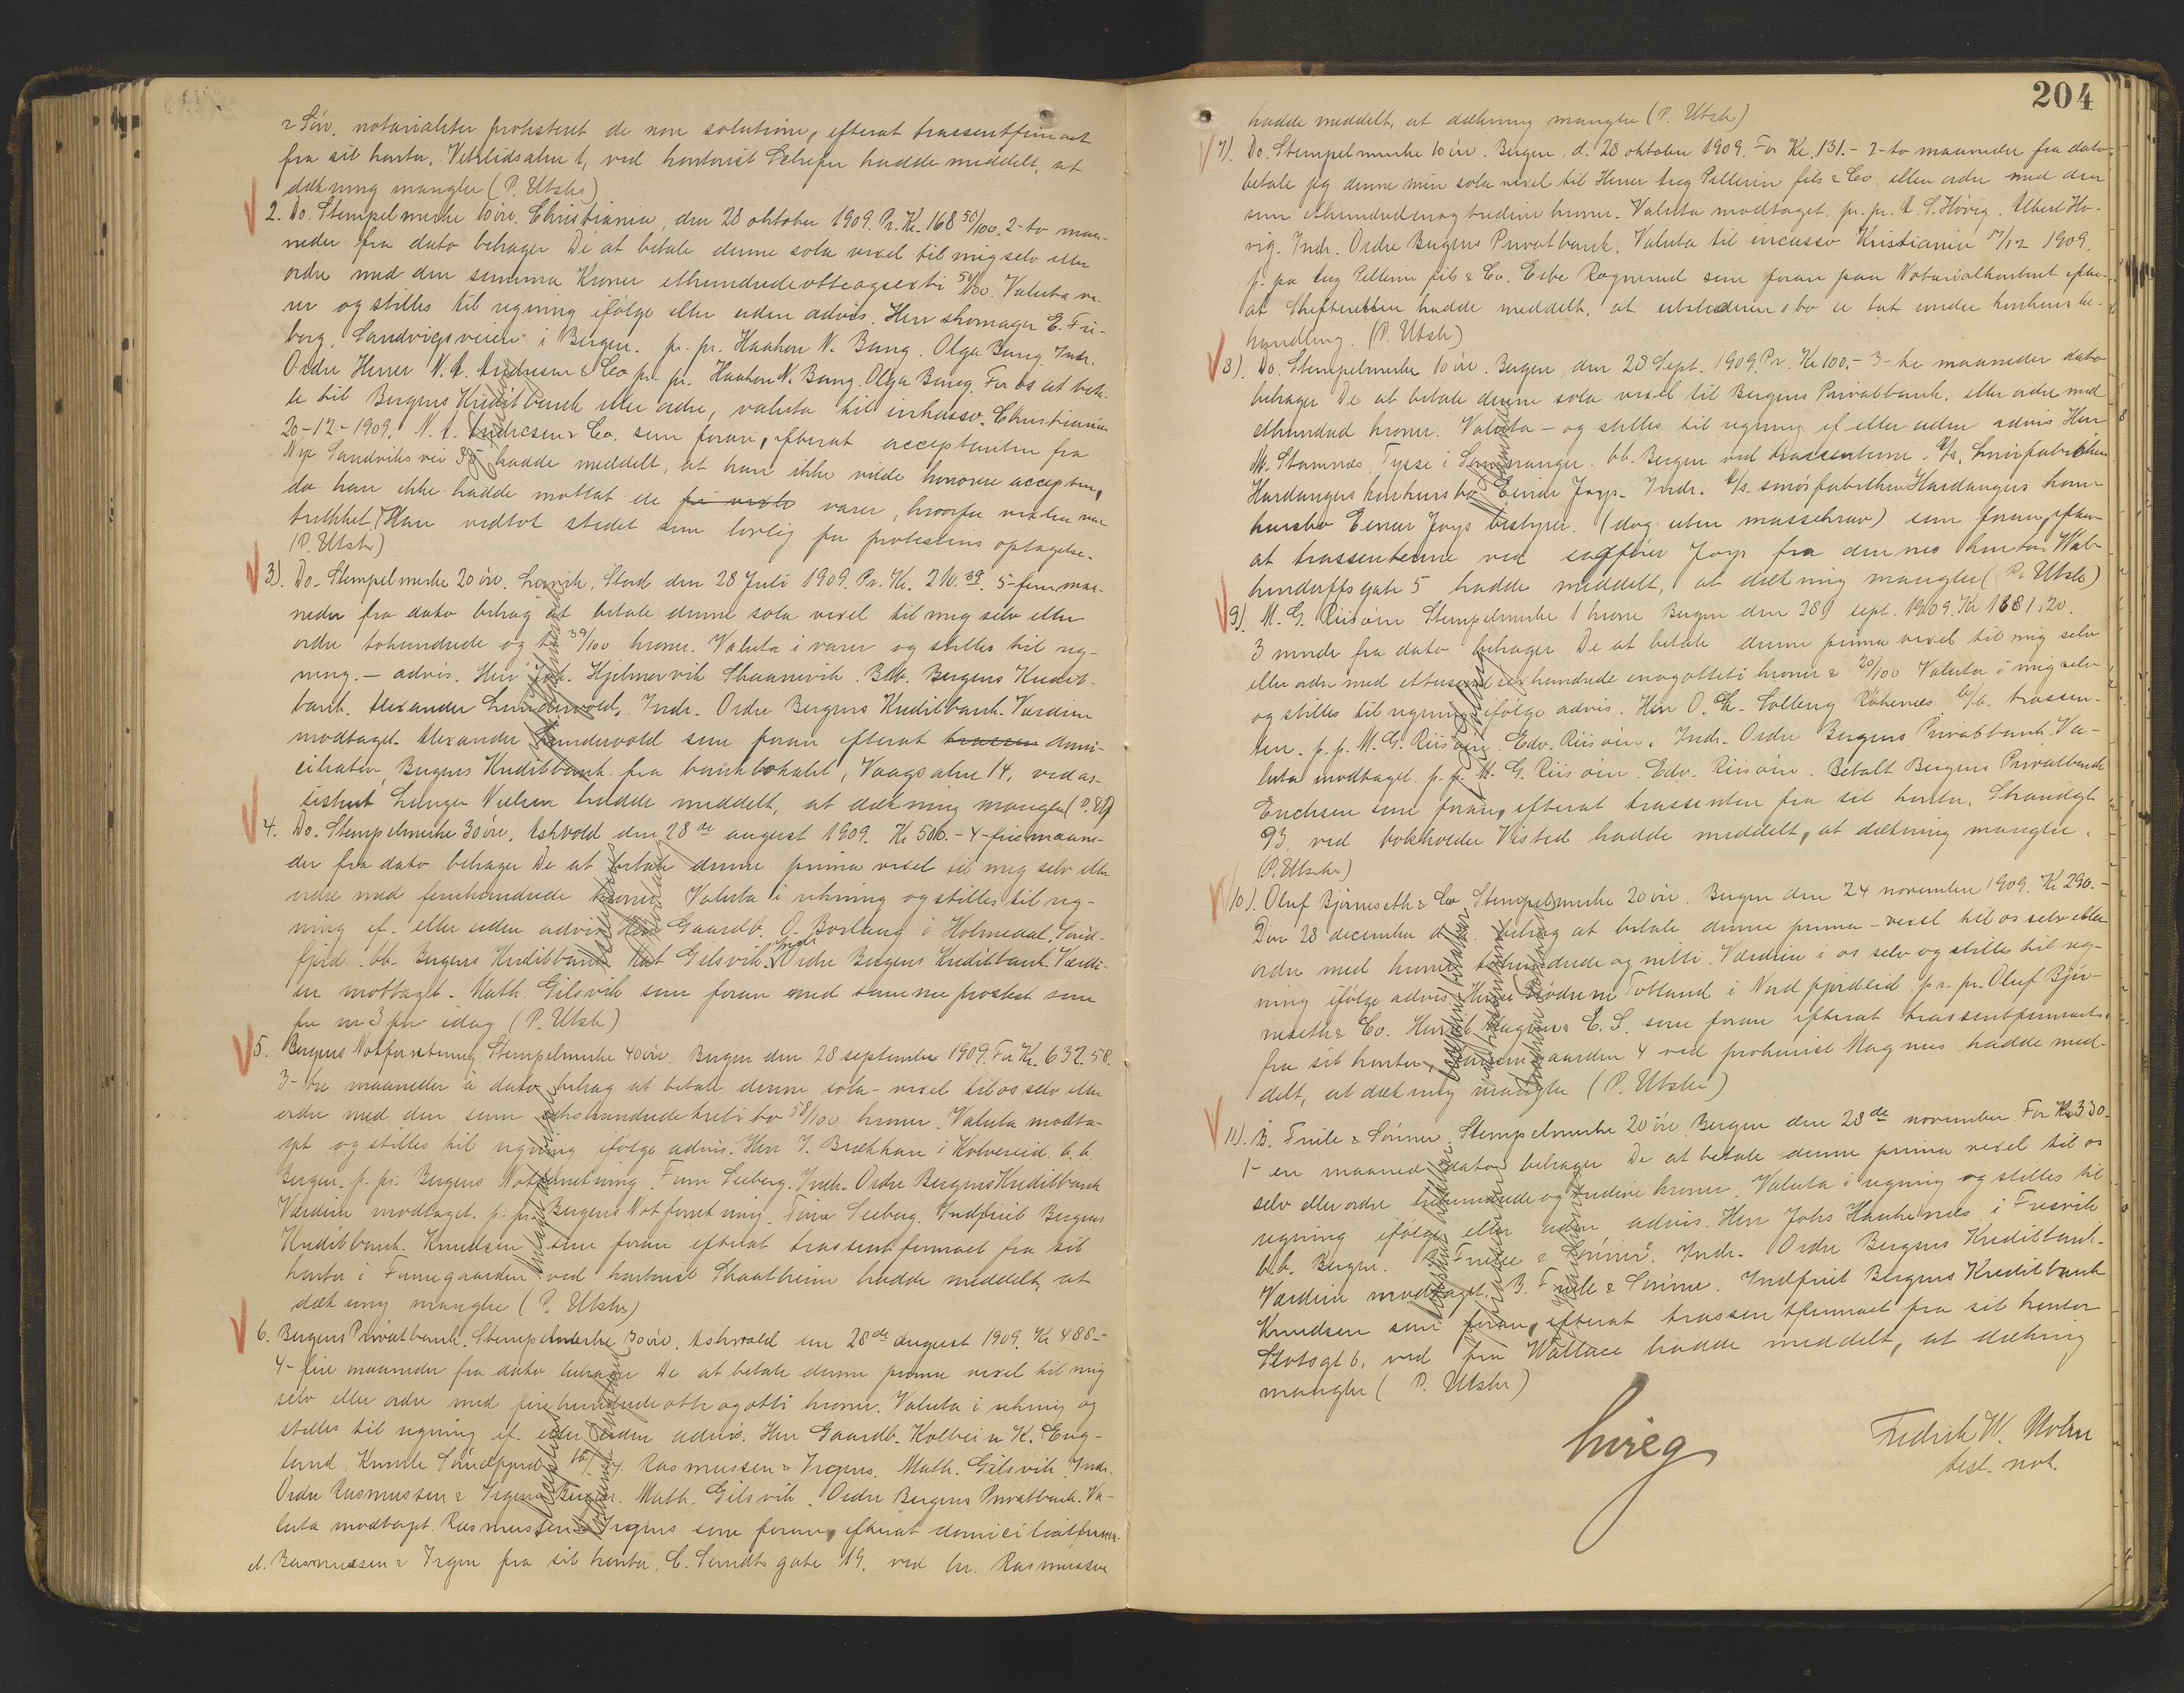 & Sön. notarialiter protestert de non solutione, efterat trassentfirmaet
fra sit kontor, Vetrlidsalm 1, ved kontorist hadde meddelt, at
dækning mangler (P. Utskr)
2. Do. Stempelmerke 10 öre. Christiania, den 28 oktober 1909. Pr. Kr. 168 50/100. 2-to maa-
neder fra dato behager De at betale denne sola vexel til mig selv eller
ordre med den summa Kroner ethundredeotteogsexti 50/100. Valuta va-
rer og stilles til regning ifölge eller uden advis. Herr skomager E. Fri-
borg, Sandvigsveien i Bergen. pr. pr. Haakon N. Bang. Olga Bang. Indr.
Ordre Herrer N. A. Andresen & Co pr. pr. Haakon N. Bang. Olga Bang. For os at beta-
le til Bergens Kreditbank eller ordre, valuta til inkasso. Christiania
20-12-1909. N. A. Andresen & Co. som foran, efterat acceptanten fra
Nye Sandviksvei 35 hadde meddelt, at han ikke vilde honorere accepten,
da han ikke hadde mottat de varer, hvorfor vexlen var
trukket. Han vedtok stedet som lovlig for protestens optagelse.
(P. Utskr)
3). Do. Stempelmerke 20 öre. Stord den 28 Juli 1909. Pr. Kr. 210.39. 5-fem maa-
neder fra dato behag at betale denne sola vexel til mig selv eller
ordre tohundrede og ti 39/100 kroner. Valuta i varer og stilles til reg-
ning. – advis. Herr Joh. Hjelmervik Skaanevik. Bet. Bergens Kredit-
bank. Alexander Lundervold, Indr. Ordre Bergens Kreditbank. Værdien
modtaget. Alexander Lundervold som foran efterat trassen domi-
ciliaten, Bergens Kreditbank fra banklokalet, Vaagsalm 14, ved as-
sistent Nielsen hadde meddelt, at dækning mangler (P. Utskr)
4. Do. Stempelmerke 30 öre. Askvold den 28de august 1909. Kr 500.- 4-fire maane-
der fra dato behager De at betale denne prima vexel til mig selv eller
ordre med femhundrede kroner. Valuta i rekning og stilles til reg-
ning if. eller uden advis. Herr Gaardb. O. Borlaug i Holmedal, Sönd-
fjord. bb. Bergens Kreditbank. Mat Gilsvik. Indr Ordre Bergens Kreditbank. Værdi-
en mottaget. Math. Gilsvik som foran med samme protest som
for nr 3 for idag (P. Utskr)
5. Bergens Notforretning Stempelmerke 40 öre. Bergen den 28 september 1909. For Kr. 632.58.
3-tre maaneder à dato behag at betale denne sola-vexel til os selv eller
ordre med den sum sekshundredetretito 58/100 kroner. Valuta modta-
get og stilles til regning ifölge advis. Herr J. Brækkan i Kolvereid. b.b.
Bergen. p. pr. Bergens Notforretning. Finn Seeberg. Indr. Ordre Bergens Kreditbank
Værdien modtaget. p. pr. Bergens Notforretning. Finn Seeberg. Indfriet Bergens
Kreditbank. Knudsen som foran efterat trassentfirmaet fra sit
kontor i Finnegaarden ved kontorist Skaatheim hadde meddelt, at
dækning mangler (P. Utskr)
6. Bergens Privatbank. Stempelmerke 30 öre. Askvold den 28de august 1909. Kr 488.-
4-fire maaneder fra dato behager De at betale denne prima vexel til mig
selv eller ordre med firehundredeotteogotti kroner. Valuta i rekning og
stilles til regning if. eller uden advis. Herr Gaardb. Kolbein K. Eng-
lund. Söndfjord. bb/. Rasmussen & Irgens. Math. Gilsvik. Indr.
Ordre Rasmussen & Irgens Bergen. Math. Gilsvik. Ordre Bergens Privatbank. Va-
luta modtaget. Rasmussen & Irgens som foran, efterat domiciliatfirma-
et. Rasmussen & Irgen fra sit kontor, C. Sundts gate 19, ved hr. Rasmussen
204
hadde meddelt, at dækning mangler (P. Utskr)
7). Do. Stempelmerke 10 öre. Bergen, d. 28 oktober 1909. For Kr. 131.- 2-to maaneder fra dato
betale jeg denne min sola vexel til Herrer Aug Pellerin fils & Co. eller ordre med den
sum ethundredeenogtredive kroner. Valuta modtaget. pr. pr. A. S. Hövig. Albert Hö-
vig. Indr. Ordre Bergens Privatbank. Valuta til incasso Kristiania 17/12 1909.
p. pa Aug Pellerin fils & Co. Esbe Rognerud som foran paa Notarialkontoret efter-
at Skifteretten hadde meddelt, at utstederens bo er tat under konkursbe-
handling. (P. Utskr)
8). Do. Stempelmerke 10 öre. Bergen, den 28 Sept. 1909. Pr. Kr 100,- 3-tre maaneder dato
behager De at betale denne sola vexel til Bergens Privatbank, eller ordre med
ethundred kroner. Valuta – og stilles til regning if. eller uden advis Herr
M. Stamnes, Tysse i Samnanger. bb. Bergen ved trassenterne. A/s. Smörfabrikken
Hardangers konkursbo Einar Joys. Indr. A/s. smörfabrikken Hardangers kon-
kursbo Einar Joys bestyrer. (dog uten massekrav) som foran, efter-
at trassenterne ved sagförer Joys fra dennes kontor Wal-
kendorffsgate 5 hadde meddelt, at dækning mangler (P. Utskr)
9). M. G. Riisöen. Stempelmerke 1 krone Bergen den 28 sept. 1909. Kr 1681,20.
3 mndr fra dato behager De at betale denne prima vexel til mig selv
eller ordre med ettusensexhundrede enogotteti kroner & 20/100 Valuta i mig selv
og stilles til regning ifölge advis. Herr O. Chr. Solling b/b. trassen-
ten. p.p. M. G. Riisöen. Edv. Riisöen. Indr. Ordre Bergens Privatbank. Va-
luta modtaget. p.p. M. G. Riisöen. Edv. Riisöen. Betalt Bergens Privatbank
Erichsen som foran, efterat trassenten fra sit kontor, Strandgt
93, ved bokholder Visted hadde meddelt, at dækning mangler.
(P. Utskr)
10). Oluf Björneseth & Co Stempelmerke 20 öre. Bergen den 24 november 1909. Kr 290.-
Den 28 december d. a. behag at betale denne prima-vexel til os selv eller
ordre med kroner tohundrede og nitti. Værdien i os selv og stilles til reg-
ning ifölge advis. Herrer Brödrene Totland i Nordfjordeid. pr. pr. Oluf Björ-
neseth & Co. E. S. som foran efterat trassentfirmaet
fra sit kontor, 4 ved prokurist Magnus hadde med-
delt, at dækning mangler (P. Utskr)
11). B. Friele & Sönner. Stempelmerke 20 öre. Bergen den 28de november. For Kr 330.-
1- en maaned dato behager De at betale denne prima vexel til os
selv eller ordre trehundrede og tredive kroner. Valuta i regning og stilles til
regning ifölge eller uden advis. Herr Johs Haukenæs i Fresvik
b.b. Bergen. B. Friele & Sönner. Indr. Ordre Bergens Kreditbank.
Værdien modtaget. B. Friele & Sönner. Indfriet Bergens Kreditbank
Knudsen som foran, efterat trassentfirmaet fra sit kontor
Slotsgt 6, ved frn Wallace hadde meddelt, at dækning
mangler (P. Utskr)
Fredrik W.
best. not.